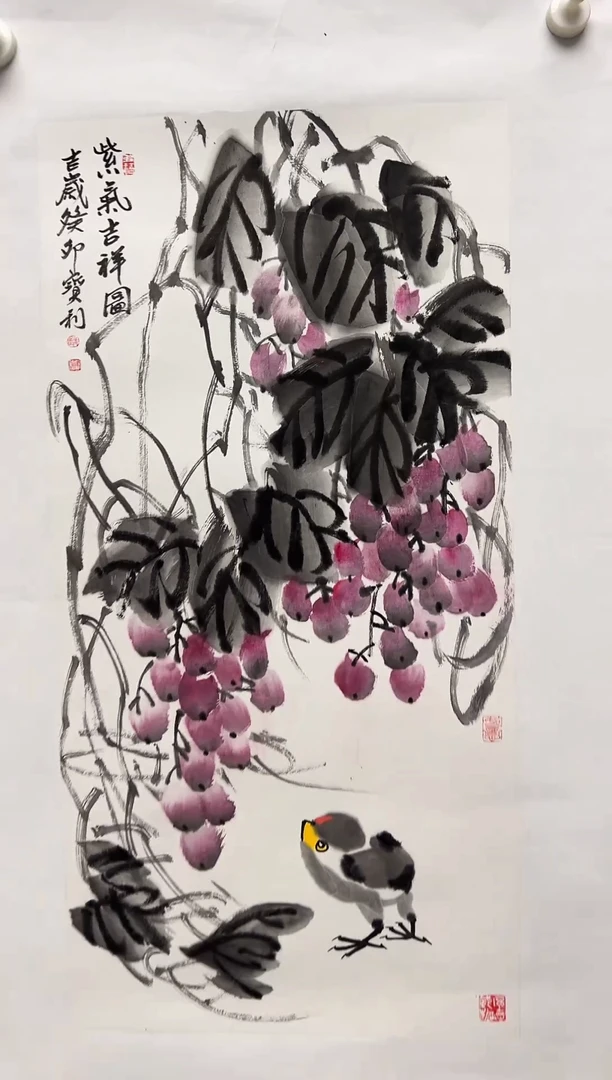 紫氣吉祥圖
吉歲癸卯寶利